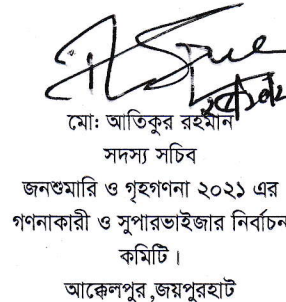 মো: আতিকুর রহমান
সদস্য সচিব
জনশুমারি ও গৃহগণনা ২০২১ এর
গণনাকারী ও সুপারভাইজার নির্বাচন
কমিটি।
আক্কেলপুর,জয়পুরহাট